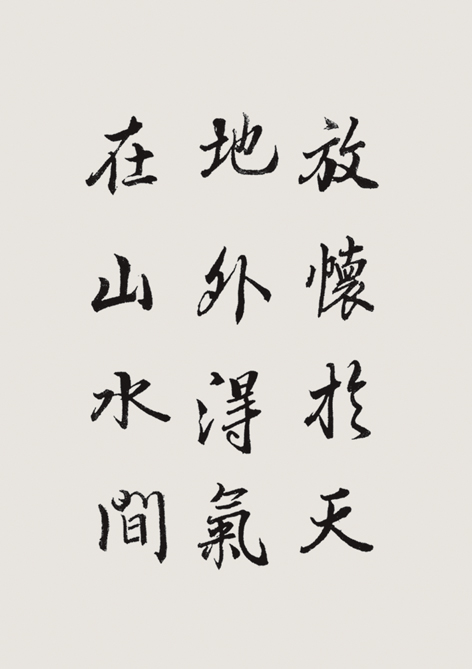 放懷於天
地外得氣
在山水間